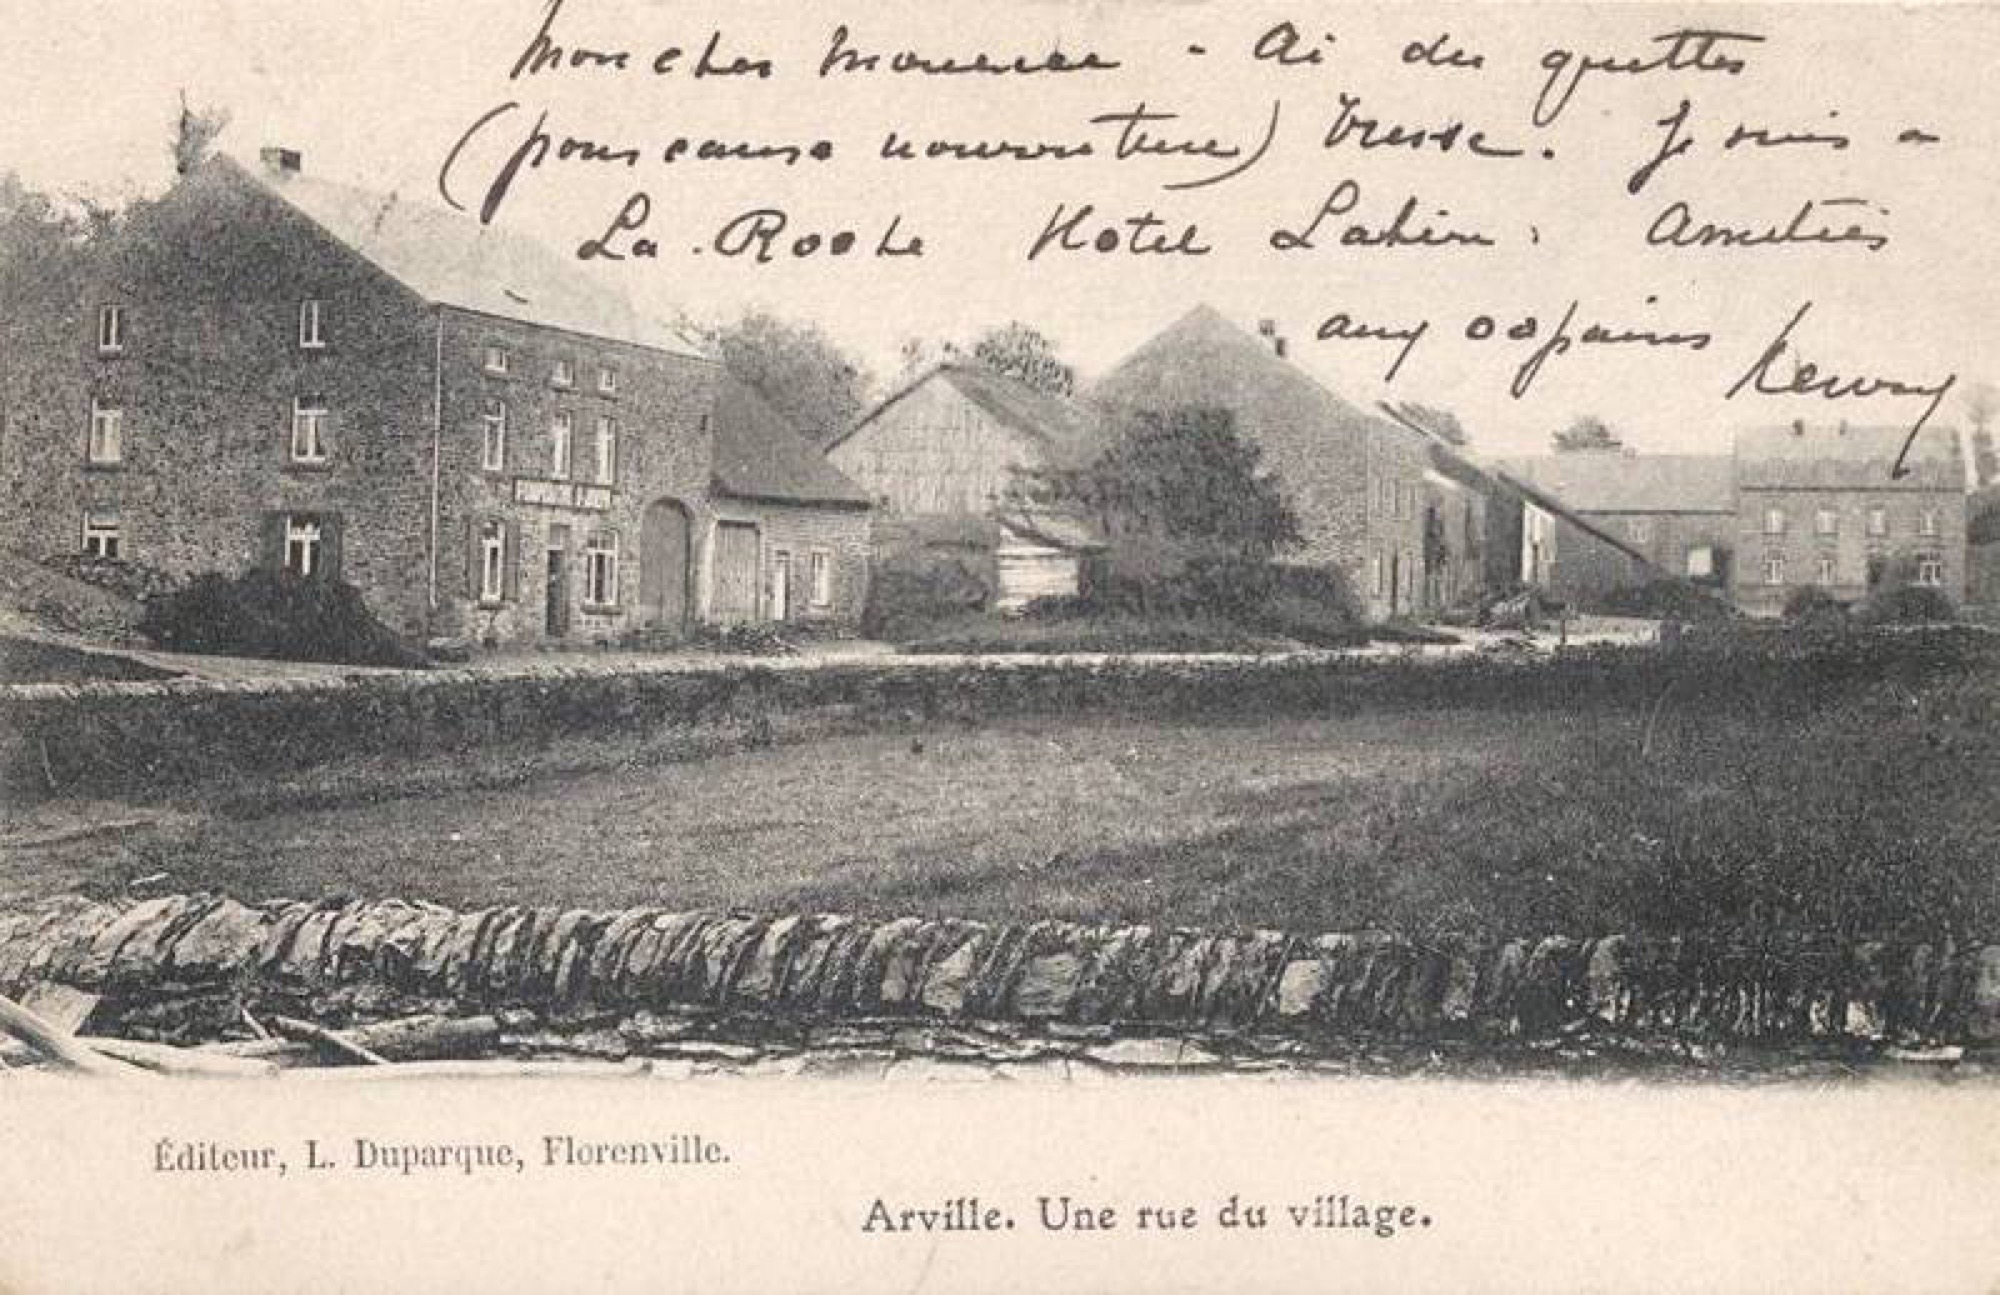 Mon cher - Ai du quitter
(pour cause nourriture) Vresse. Je suis a
La Roche Hotel : Amitiés
aux copains Henry
Éditeur, L. Duparque, Florenville.
Arville. Une rue du village.